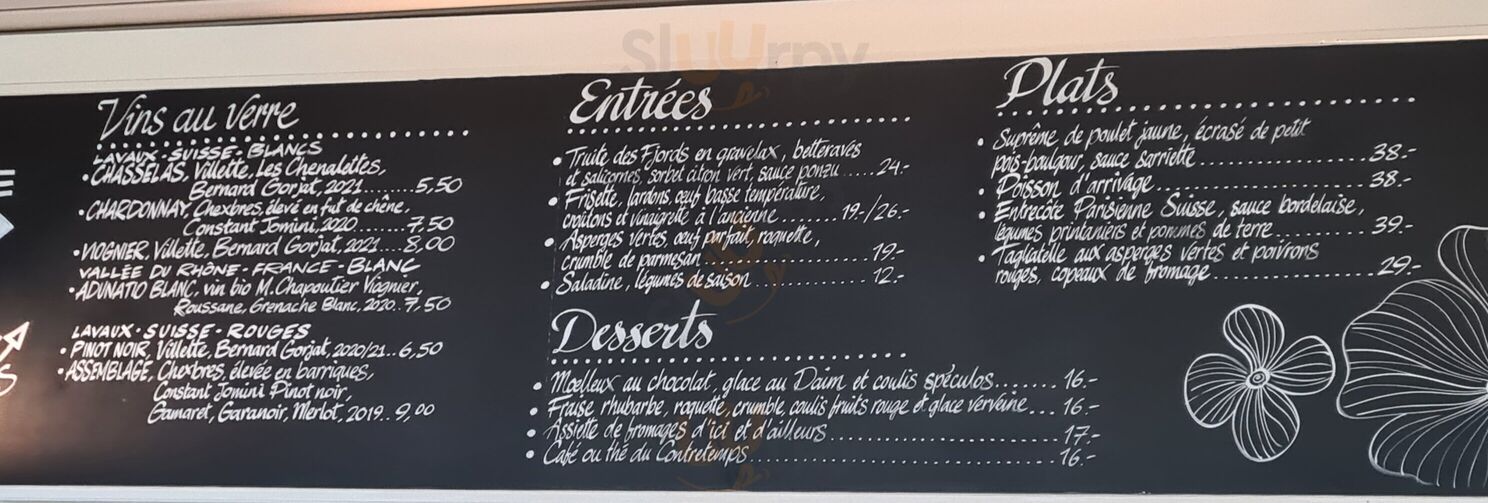 Sluurpy
Vins au verre
LAVAUX-SUISSE-BLANCS
• CHASSELAS, Villette, Les Chenalettes,
Bernard Gorjat, 2021........5,50
• CHARDONNAY, Chexbres, élevé en fût de chêne,
Constant Jomini, 2020........7,50
• VIOGNIER, Villette, Bernard Gorjat, 2021....8,00
VALLÉE DU RHÔNE-FRANCE-BLANC
• ADUNATIO BLANC, vin bio M.Chapoutier Viognier,
Roussane, Grenache Blanc, 2020..7,50
LAVAUX-SUISSE-ROUGES
• PINOT NOIR, Villette, Bernard Gorjat, 2020/21..6,50
• ASSEMBLAGE, Chexbres, élevée en barriques,
Constant Jomini Pinot noir,
Gamaret, Garanoir, Merlot, 2019..9,00
Entrées
• Truite des Fjords en gravelax, betteraves
et salicornes, sorbet citron vert, sauce ponzu.....24.-
• Frisette, lardons, œuf basse température,
croûtons et vinaigrette à l'ancienne........19.-/26.-
• Asperges vertes, œuf parfait, roquette,
crumble de parmesan...................19.-
• Saladine, légumes de saison..............12.-
Desserts
• Moelleux au chocolat, glace au Daim et coulis spéculos.......16.-
• Fraise rhubarbe, roquette, crumble, coulis fruits rouge et glace verveine...16.-
• Assiette de fromages d'ici et d'ailleurs...........................17.-
• Café ou thé du Contretemps...................................16.-
Plats
• Suprême de poulet jaune, écrasé de petit
pois-boulgour, sauce sarriette...................38.-
• Poisson d'arrivage.........................38.-
• Entrecôte Parisienne Suisse, sauce bordelaise,
légumes printaniers et pommes de terre...........39.-
• Tagliatelle aux asperges vertes et poivrons
rouges, copeaux de fromage...................29.-